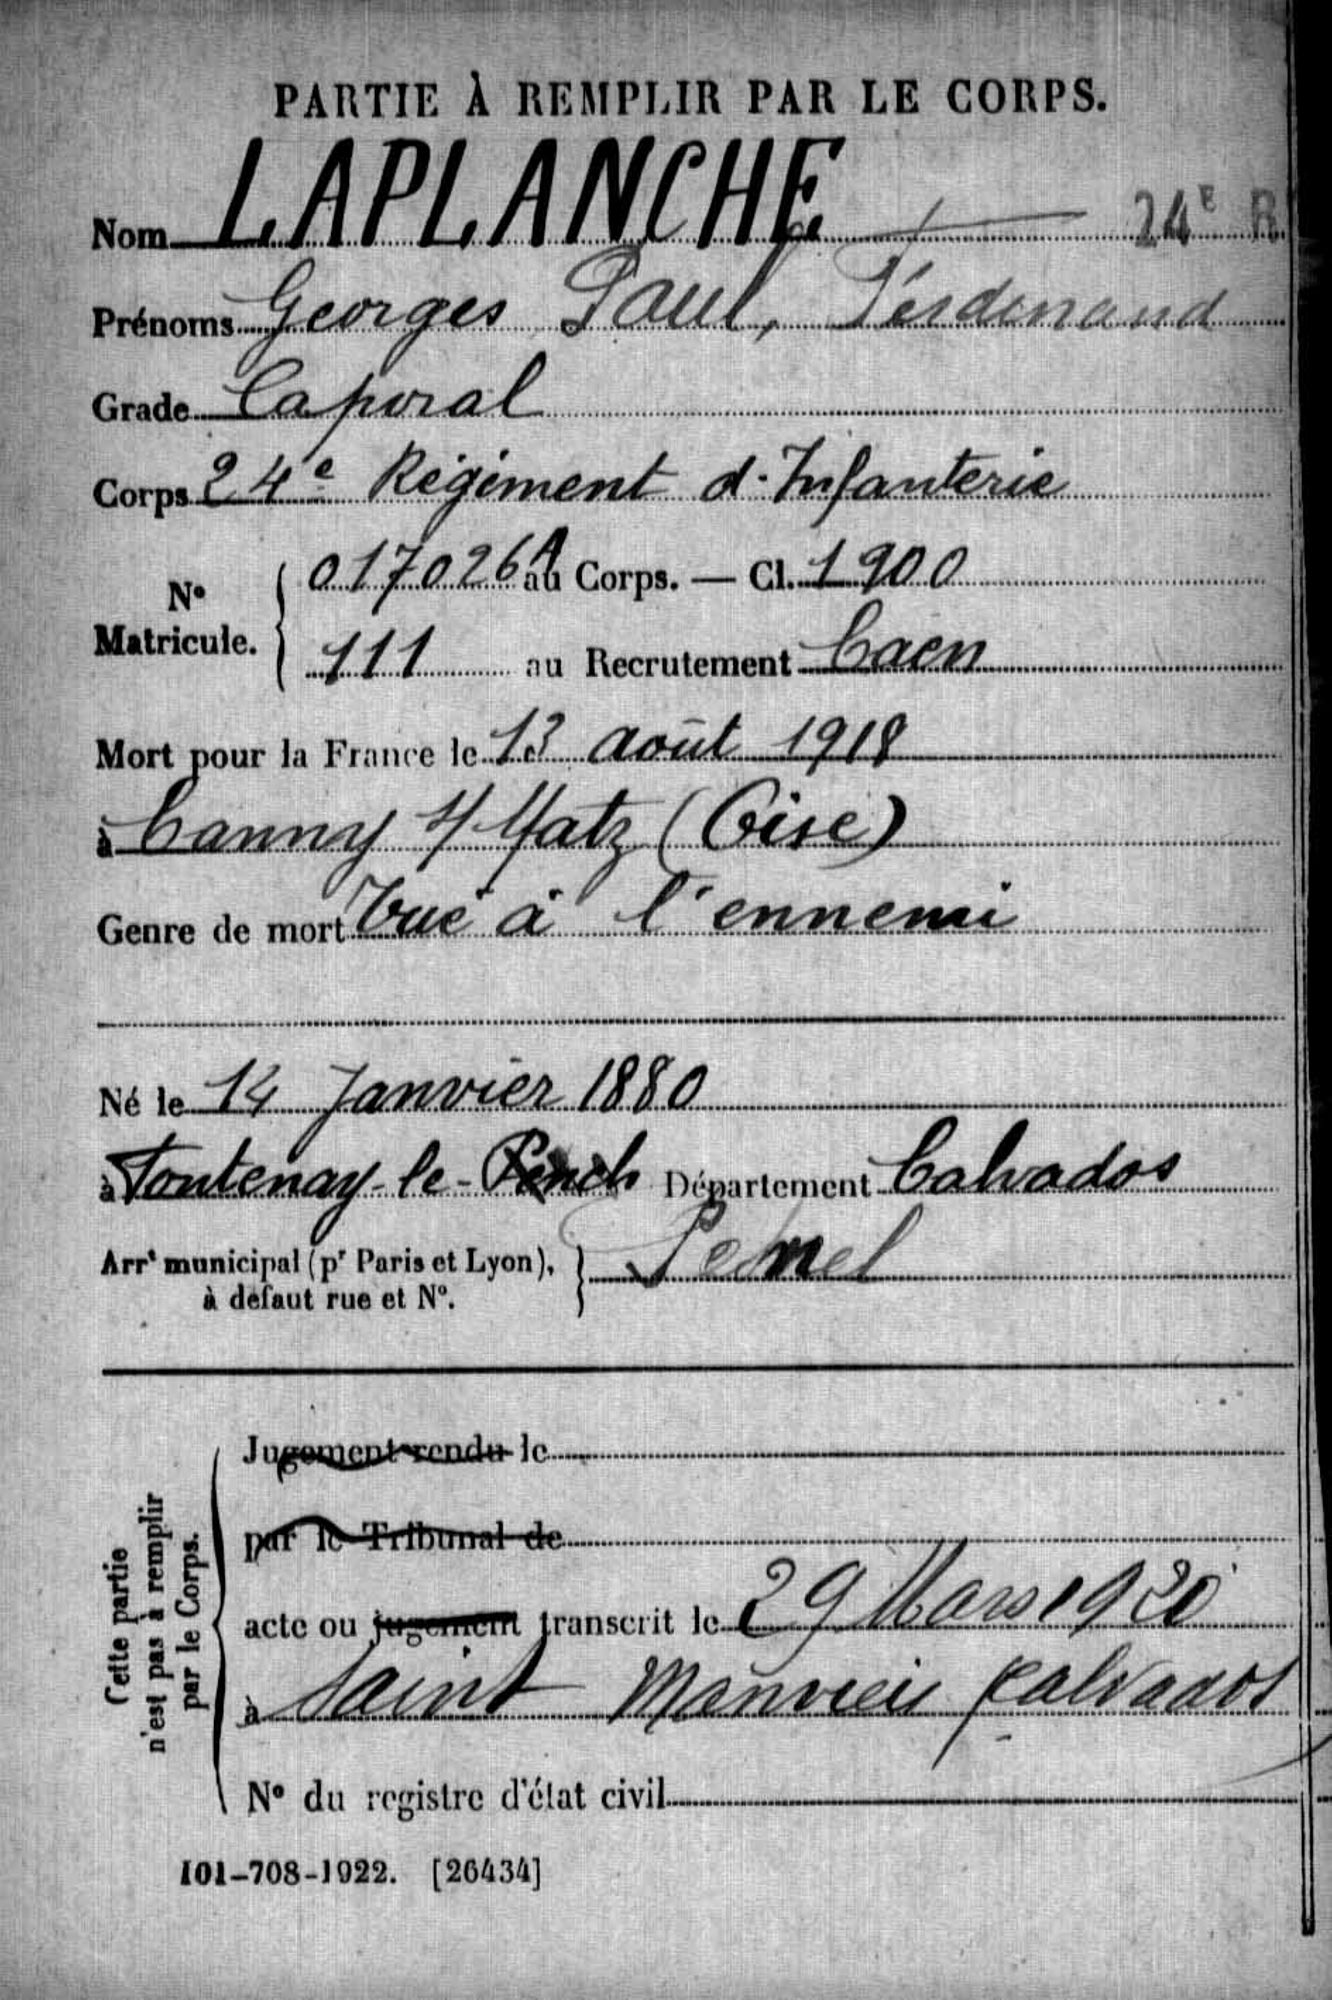 PARTIE À REMPLIR PAR LE CORPS.
Nom LAPLANCHE 24E R
Prénoms Georges Paul, Ferdinand
Grade Caporal
Corps 24e Régiment d'Infanterie
No Matricule. 017026A au Corps. — Cl. 1900
111 au Recrutement Caen
Mort pour la France le 13 août 1918
à Canny s/ Matz (Oise)
Genre de mort Tué à l'ennemi
Né le 14 Janvier 1880
à Fontenay-le- Département Calvados
Arrt municipal (pr Paris et Lyon), à défaut rue et No. Pesnel
Jugement rendu le
par le Tribunal de
acte ou jugement transcrit le 29 Mars 1920
à Saint Manvieu Calvados
No du registre d'état civil
Cette partie n'est pas à remplir par le Corps.
101-708-1922. [26434]